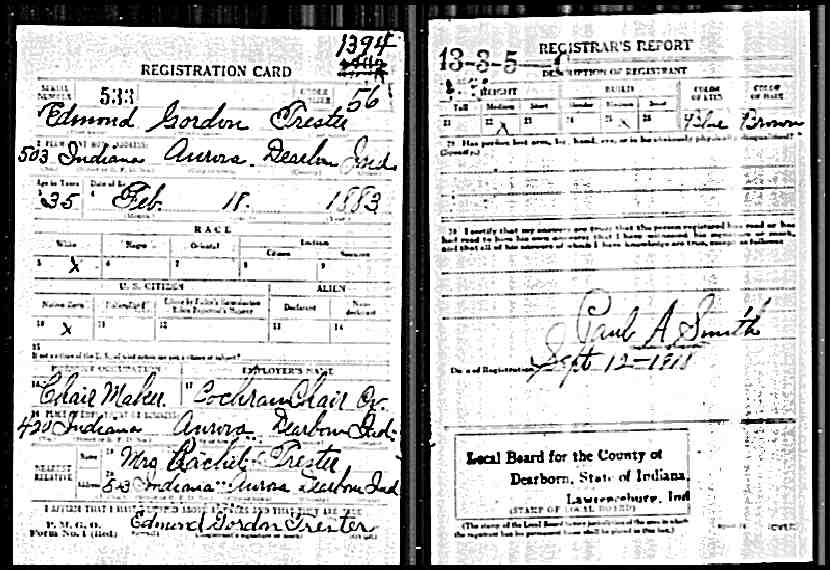 1394
REGISTRATION CARD
SERIAL NUMBER 533 ORDER NUMBER 56
Edmond Gordon Trester
503 Indiana Aurora Dearborn Ind
Age in Years Date of
35 Feb. 18. 1883
RACE
White Negro Oriental Indian
Citizen
5 X 6 7 8 9
U. S. CITIZEN ALIEN
Native Born Declarant
10 X 11 12 13 14
15
EMPLOYER'S NAME
Chair Maker 17 Cochran Chair Co.
420 Indiana Aurora Dearborn Ind.
NEAREST RELATIVE Name Mrs Rachel Trester
Address 503 Indiana Aurora Dearborn Ind
P. M. G. O.
Form No. 1 (Red) Edmond Gordon Trester
13-3-5
REGISTRAR'S REPORT
DESCRIPTION OF REGISTRANT
HEIGHT BUILD COLOR OF EYES COLOR OF HAIR
Tall Medium Short Slender Medium Stout
21 22 X 23 24 25 X 26 Blue Brown
29 Has person lost arm, leg, hand, eye, or is he obviously physically disqualified?
(Specify.)
30 I certify that my answers are true; that the person registered has read or has
had read to him his own answers; that I have witnessed his signature or mark,
and that all of his answers of which I have knowledge are true, except as follows:
Paul A Smith
Date of Registration Sept 12-1918
Local Board for the County of
Dearborn, State of Indiana,
Lawrenceburg, Ind
(STAMP OF LOCAL BOARD)
(The stamp of the Local Board having jurisdiction of the area in which
the registrant has his permanent home shall be placed in this box.)